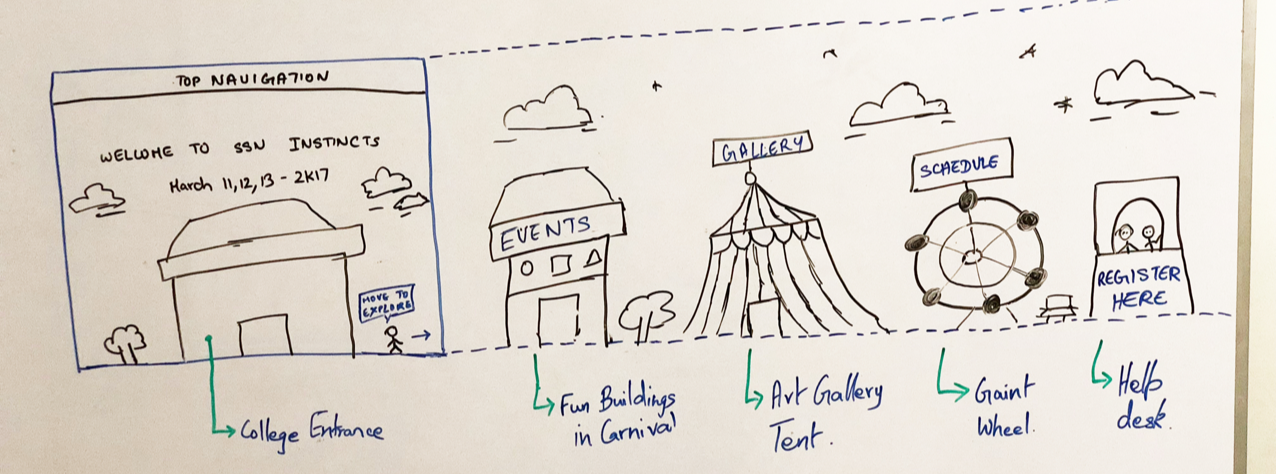 TOP NAVIGATION
WELCOME TO SSN INSTINCTS
March 11, 12, 13 - 2K17
MOVE TO
EXPLORE
EVENTS
GALLERY
SCHEDULE
REGISTER
HERE
College Entrance
Fun Buildings
in Carnival
Art Gallery
Tent.
Gaint
Wheel.
Help
desk.